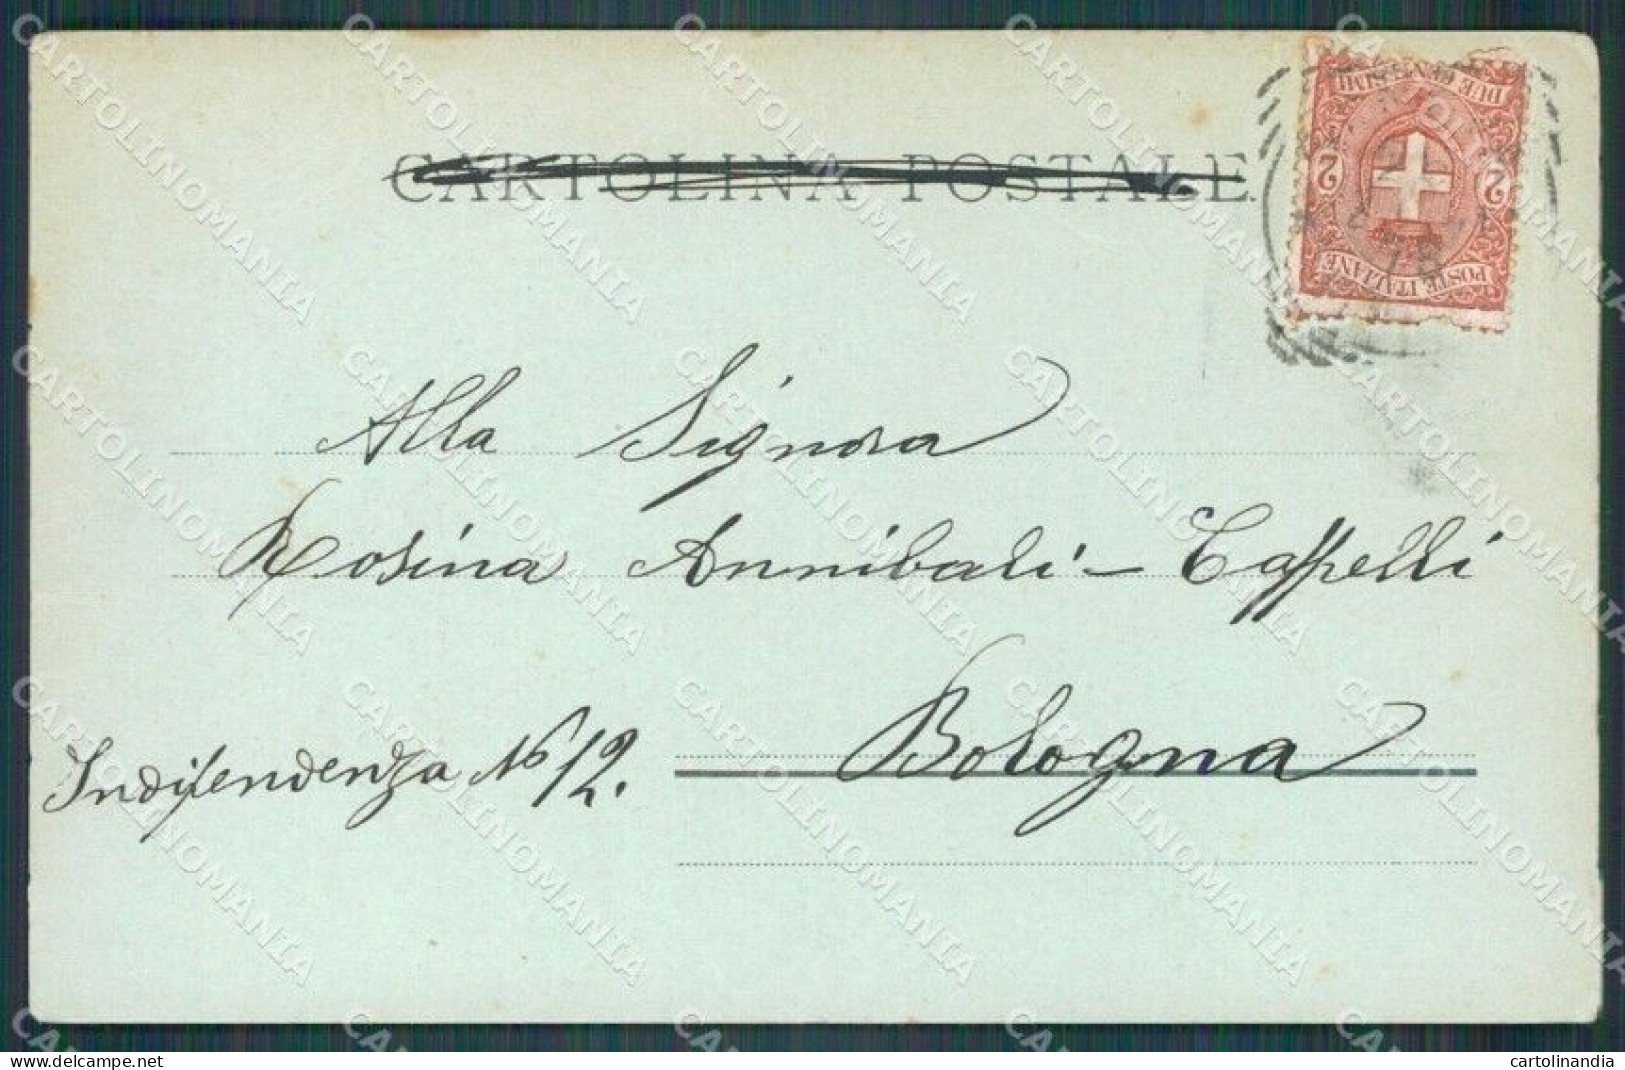 CARTOLINA POSTALE
POSTE ITALIANE
2 2
DUE CENTESIMI
Alla Signora
Rosina Annibali - Cappelli
Bologna
Indipendenza No 12.
CARTOLINOMANIA
delcampe.net
cartolinandia